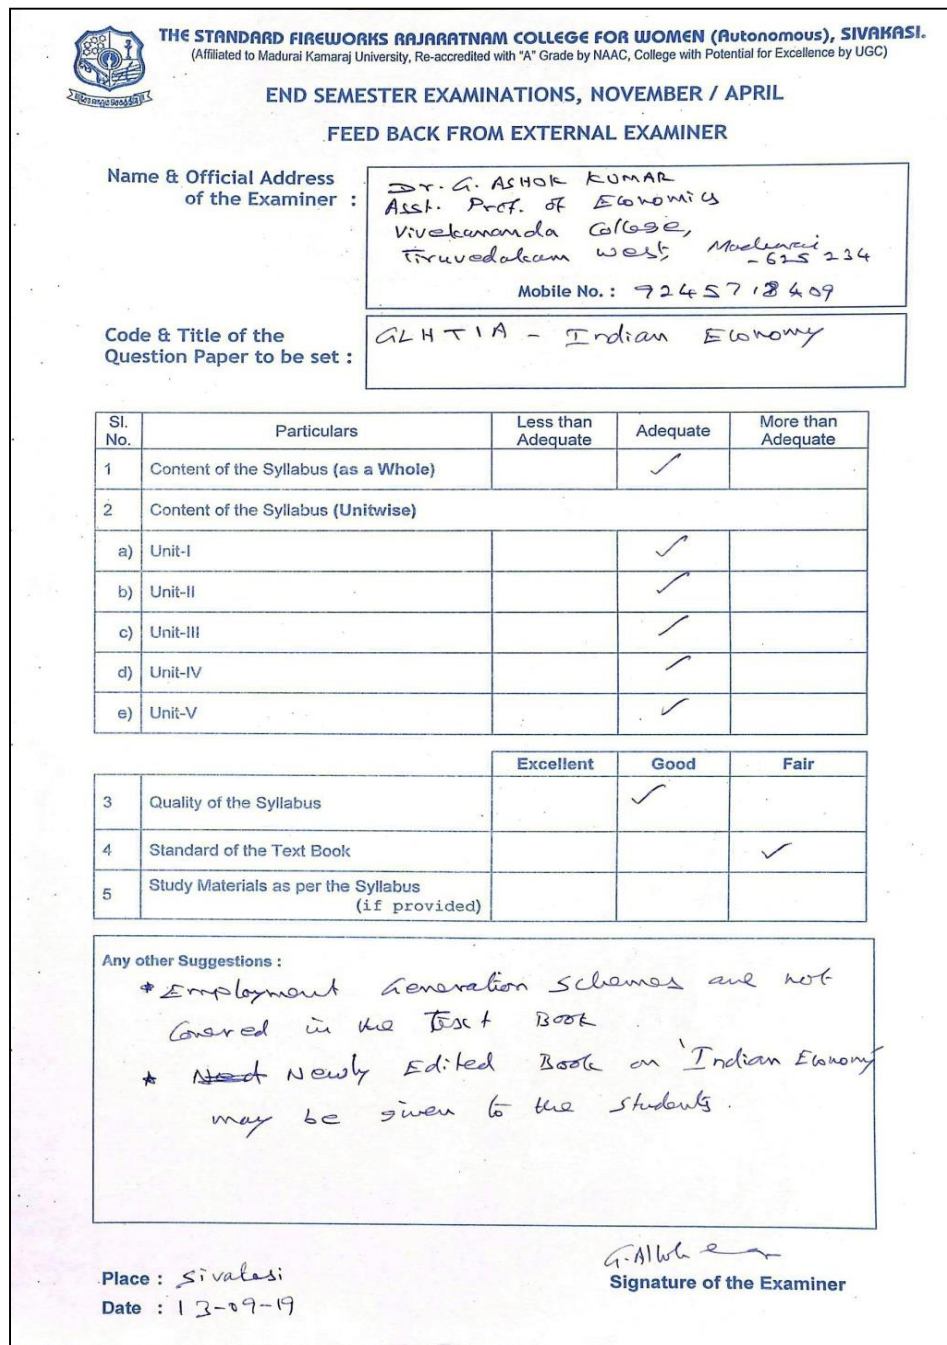 THE STANDARD FIREWORKS RAJARATNAM COLLEGE FOR WOMEN (Autonomous), SIVAKASI.
(Affiliated to Madurai Kamaraj University, Re-accredited with "A" Grade by NAAC, College with Potential for Excellence by UGC)
END SEMESTER EXAMINATIONS, NOVEMBER / APRIL
FEED BACK FROM EXTERNAL EXAMINER
Name & Official Address
of the Examiner :
Dr. G. ASHOK KUMAR
Asst. Prof. of Economics
Vivekananda College,
Tiruvedakam West, Madurai
- 625 234
Mobile No. : 9245718409
Code & Title of the
Question Paper to be set :
GLHT1A - Indian Economy
Sl. No. Particulars Less than Adequate Adequate More than Adequate
1 Content of the Syllabus (as a Whole) ✓
2 Content of the Syllabus (Unitwise)
a) Unit-I ✓
b) Unit-II ✓
c) Unit-III ✓
d) Unit-IV ✓
e) Unit-V ✓
Excellent Good Fair
3 Quality of the Syllabus ✓
4 Standard of the Text Book ✓
5 Study Materials as per the Syllabus
(if provided)
Any other Suggestions :
* Employment Generation Schemes are not
Covered in the Text Book
* Newly Edited Book on 'Indian Economy'
may be given to the students.
Place : Sivakasi
Signature of the Examiner
Date : 13-09-19